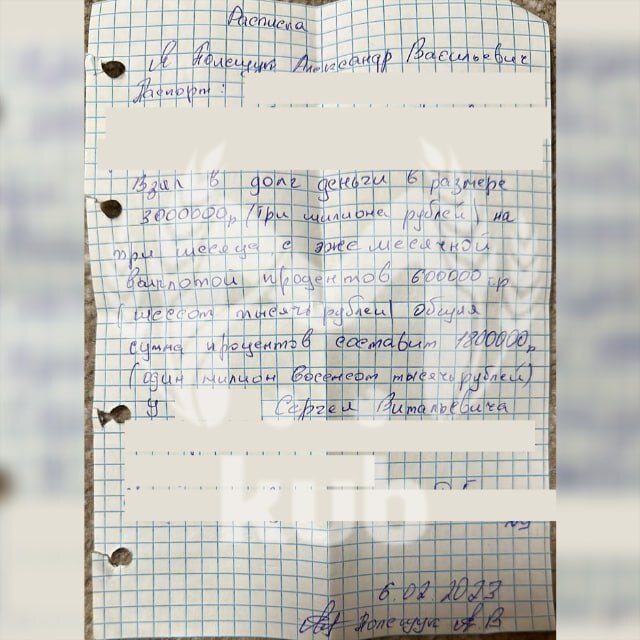 Расписка
Я Полещук Александр Васильевич
Паспорт:
Взял в долг деньги в размере
3000000р (три милиона рублей) на
три месяца с эжемесячной
выплотой процентов 600000 р
(шессот тысячь рублей) общая
сумма процентов составит 1800000р
(один милион восемсот тысячь рублей)
У Сергея Витальевича
kub
6.02 2023
Полещук А.В